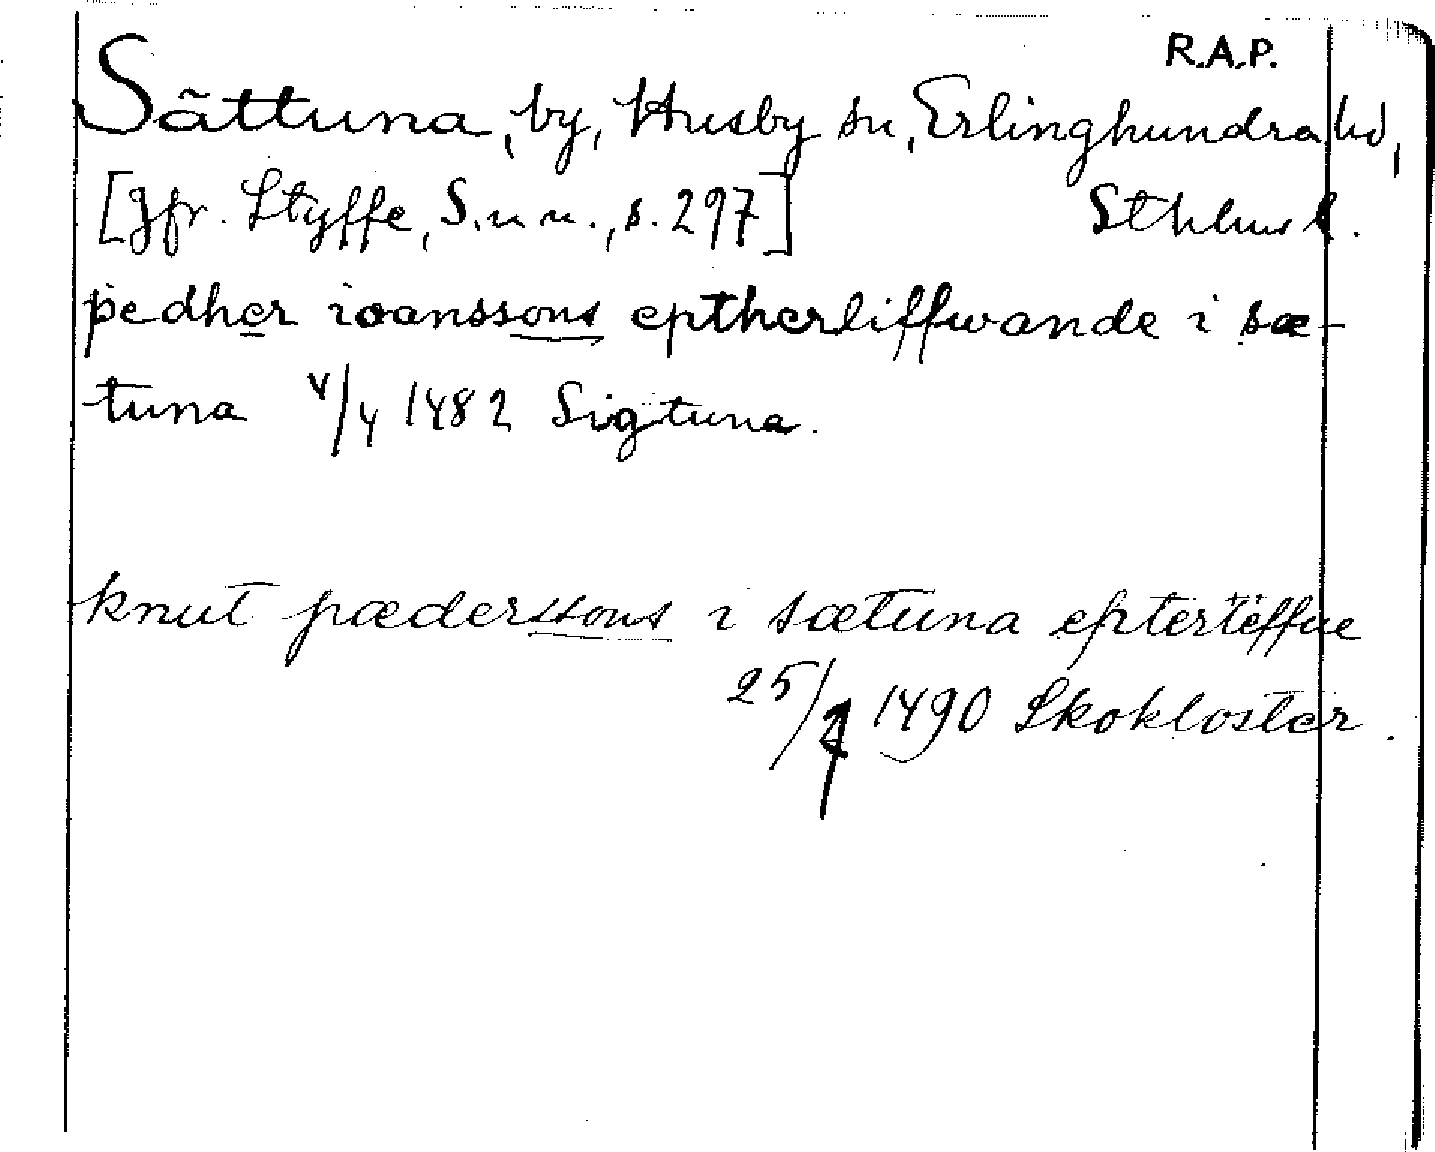 R.A.P.
Sättuna, by, Husby sn, Erlinghundra hd,
[Jfr. Styffe, S.u.u., s. 297] Sthlms l.
pedher ioanssons eptherliffwande i sæ-
tuna 4/4 1482 Sigtuna.
knut pæderssons i sætuna
25/7 1490 Skokloster.